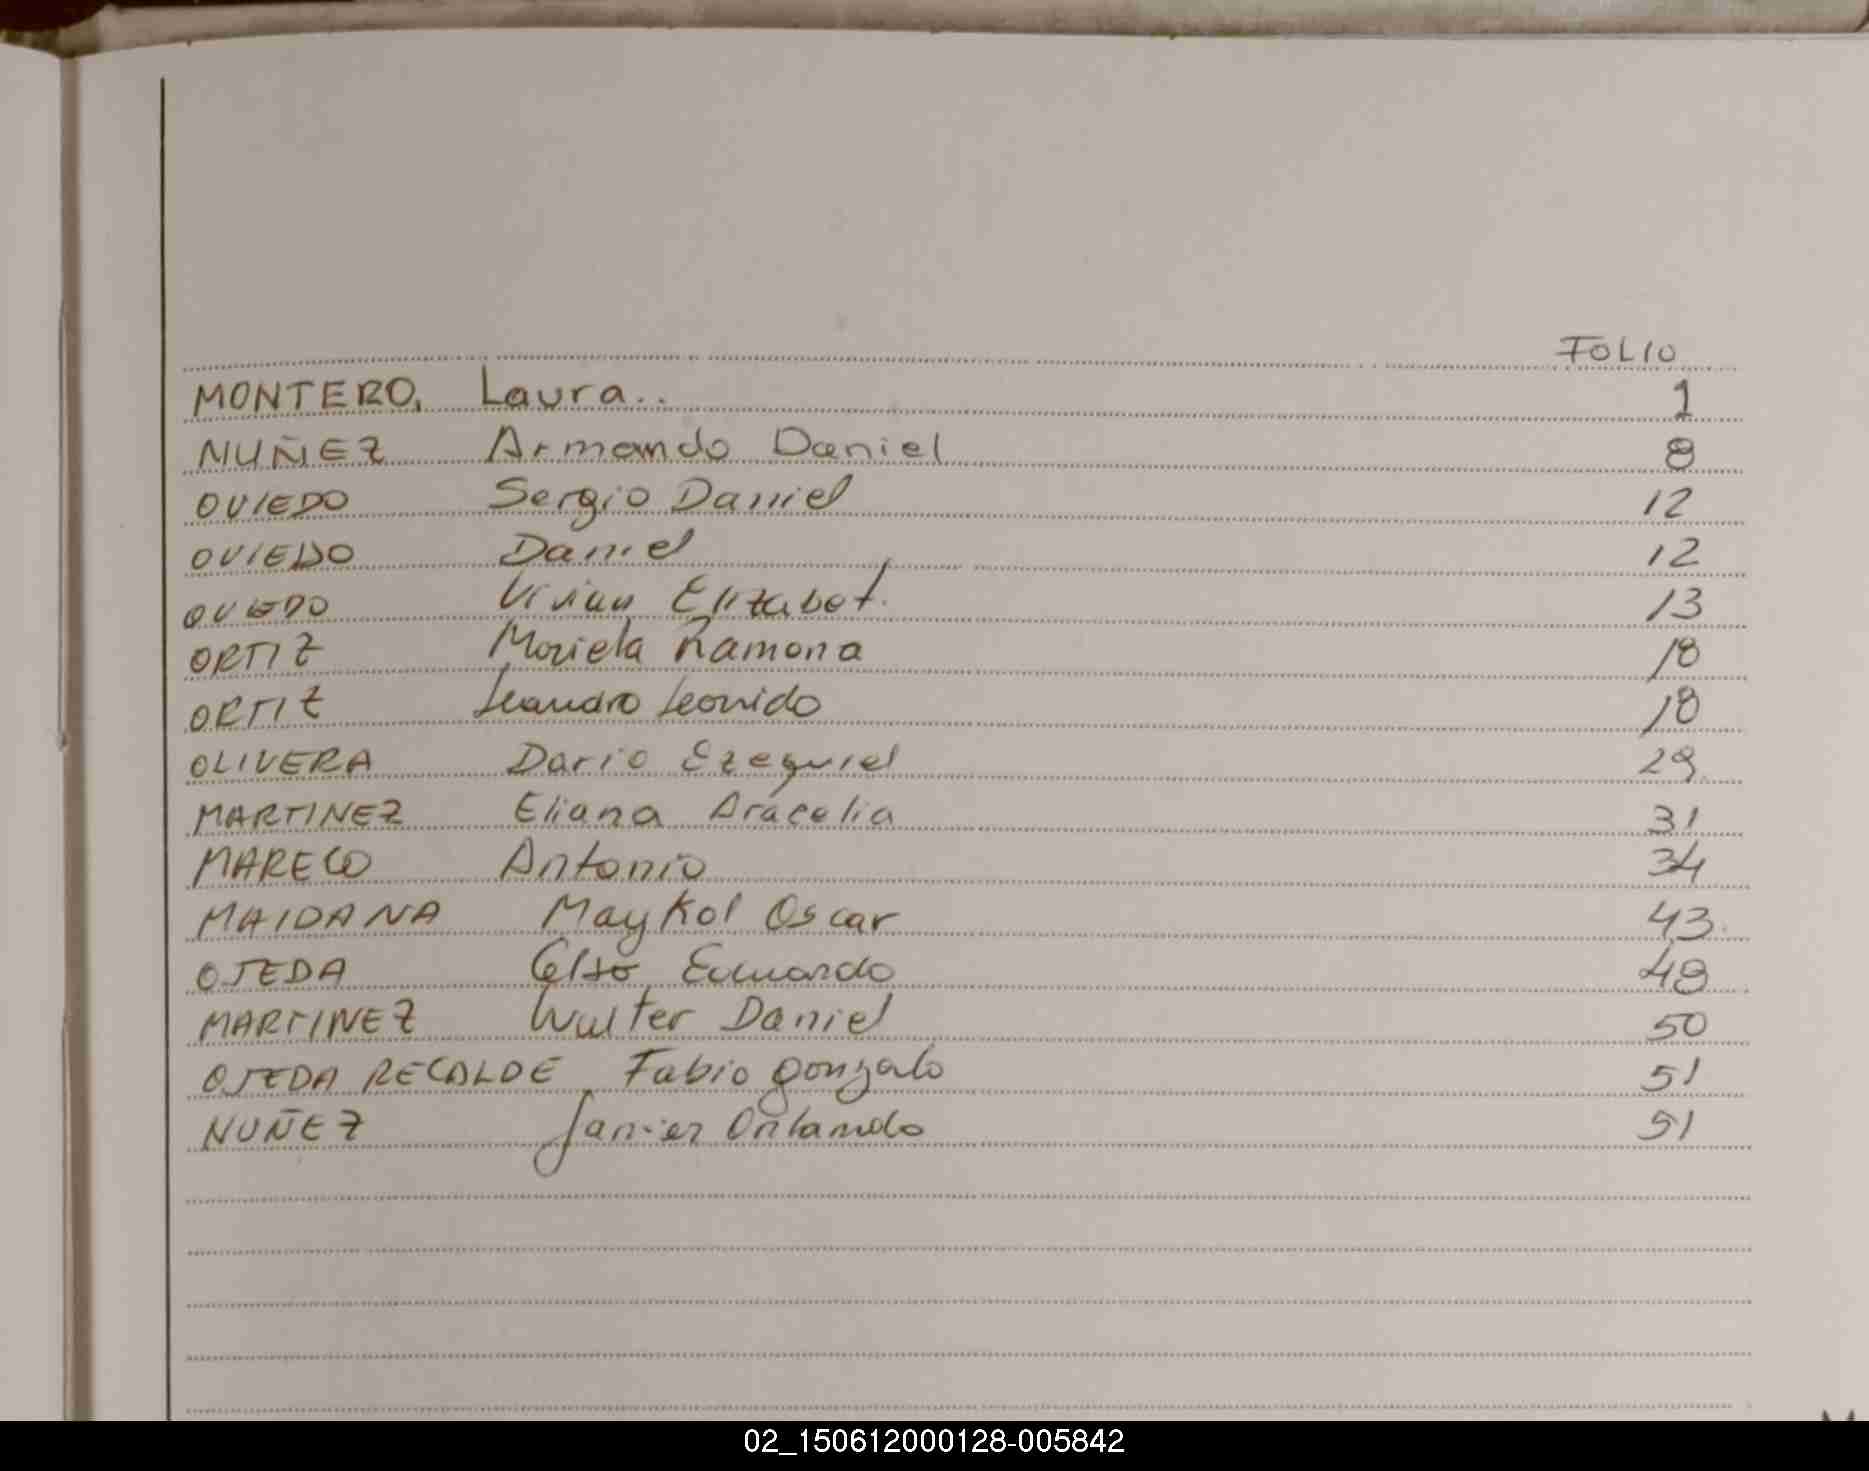 FOLIO
MONTERO, Laura.. 1
NUÑEZ Armando Daniel 8
OVIEDO Sergio Daniel 12
OVIEDO Daniel 12
OVIEDO Vivian Elizabet. 13
ORTIZ Mariela Ramona 18
ORTIZ Leandro Leonido 18
OLIVERA Dario Ezequiel 29
MARTINEZ Eliana Aracelia 31
MARECO Antonio 34
MAIDANA Maykol Oscar 43
OJEDA Celso Eduardo 48
MARTINEZ Walter Daniel 50
OJEDA RECALDE Fabio gonzalo 51
NUÑEZ Javier Orlando 51
02_150612000128-005842